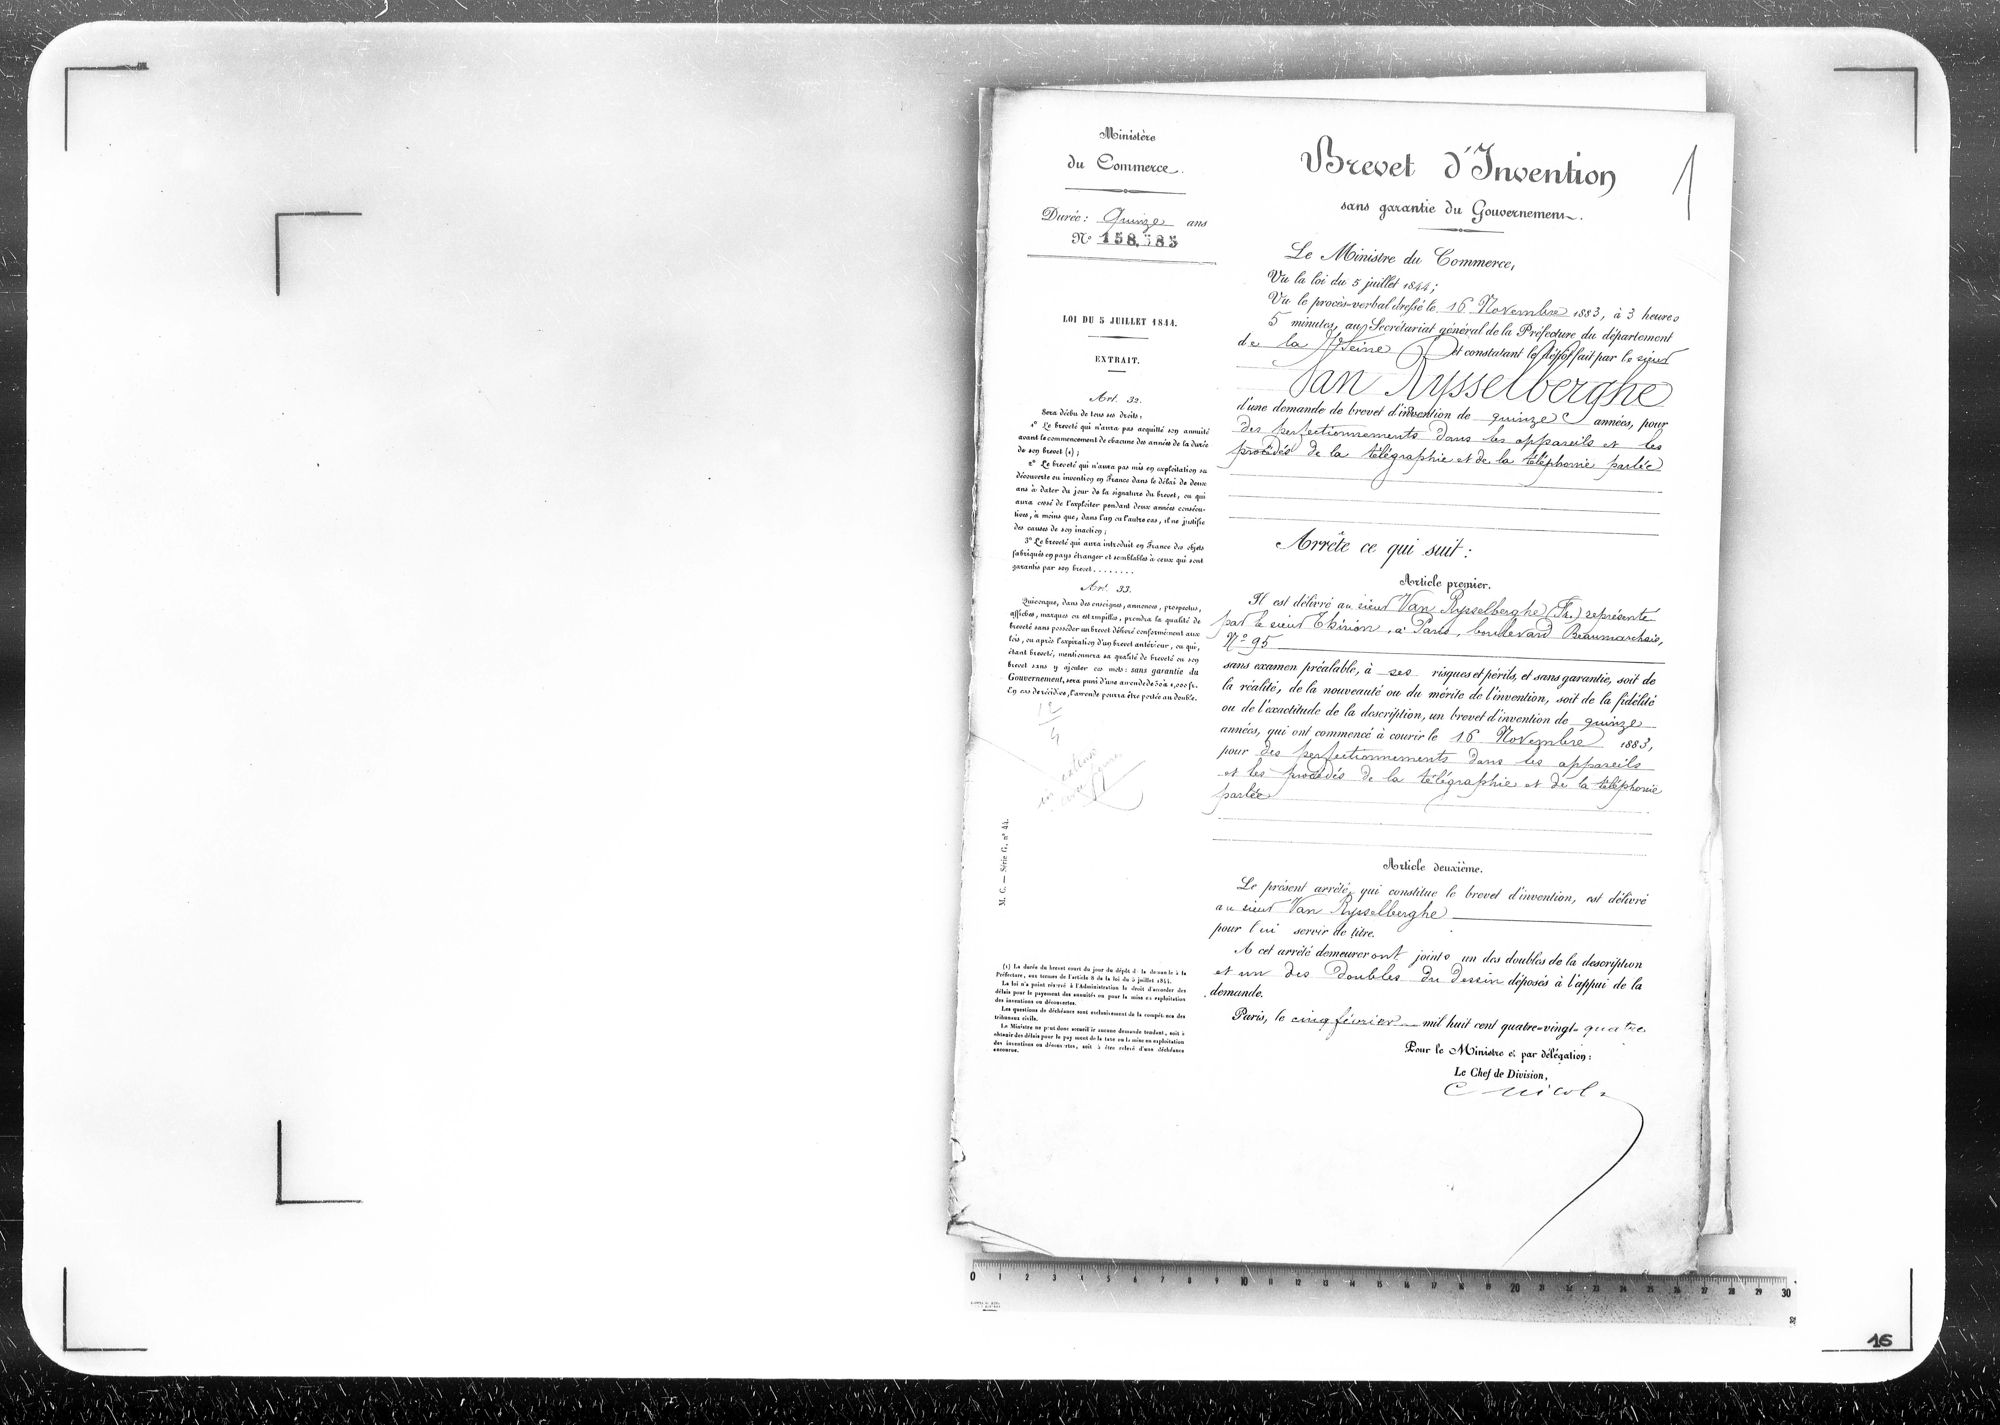 Ministère
du Commerce.
Durée : Quinze ans
N° 158,585
LOI DU 5 JUILLET 1844.
EXTRAIT.
Art. 32.
Sera déchu de tous ses droits :
1° Le breveté qui n'aura pas acquitté son annuité
avant le commencement de chacune des années de la durée
de son brevet (1) ;
2° Le breveté qui n'aura pas mis en exploitation sa
découverte ou invention en France dans le délai de deux
ans à dater du jour de la signature du brevet, ou qui
aura cessé de l'exploiter pendant deux années consécu-
tives, à moins que, dans l'un ou l'autre cas, il ne justifie
des causes de son inaction ;
3° Le breveté qui aura introduit en France des objets
fabriqués en pays étranger et semblables à ceux qui sont
garantis par son brevet........
Art. 33.
Quiconque, dans des enseignes, annonces, prospectus,
affiches, marques ou estampilles, prendra la qualité de
breveté sans posséder un brevet délivré conformément aux
lois, ou après l'expiration d'un brevet antérieur, ou qui,
étant breveté, mentionnera sa qualité de breveté ou son
brevet sans y ajouter ces mots : sans garantie du
Gouvernement, sera puni d'une amende de 50 à 1,000 fr.
En cas de récidive, l'amende pourra être portée au double.
12
4
in extenso
M. C. — Série G, n° 44.
(1) La durée du brevet court du jour du dépôt de la demande à la
Préfecture, aux termes de l'article 8 de la loi du 5 juillet 1844.
La loi n'a point réservé à l'Administration le droit d'accorder des
délais pour le payement des annuités ou pour la mise en exploitation
des inventions ou découvertes.
Les questions de déchéance sont exclusivement de la compétence des
tribunaux civils.
Le Ministre ne peut donc accueillir aucune demande tendant, soit à
obtenir des délais pour le payement de la taxe ou la mise en exploitation
des inventions ou découvertes, soit à être relevé d'une déchéance
encourue.
Brevet d'Invention
1
sans garantie du Gouvernement.
Le Ministre du Commerce,
Vu la loi du 5 juillet 1844 ;
Vu le procès-verbal dressé le 16 Novembre 1883, à 3 heures
5 minutes, au Secrétariat général de la Préfecture du département
de la Seine et constatant le dépôt fait par le sieur
Van Rysselberghe
d'une demande de brevet d'invention de quinze années, pour
des perfectionnements dans les appareils et les
procédés de la télégraphie et de la téléphonie parlée
Arrête ce qui suit :
Article premier.
Il est délivré au sieur Van Rysselberghe (Th.) représenté
par le sieur Thirion, à Paris, boulevard Beaumarchais,
N° 95
sans examen préalable, à ses risques et périls, et sans garantie, soit de
la réalité, de la nouveauté ou du mérite de l'invention, soit de la fidélité
ou de l'exactitude de la description, un brevet d'invention de quinze
années, qui ont commencé à courir le 16 Novembre 1883,
pour des perfectionnements dans les appareils
et les procédés de la télégraphie et de la téléphonie
parlée
Article deuxième.
Le présent arrêté, qui constitue le brevet d'invention, est délivré
au sieur Van Rysselberghe
pour lui servir de titre.
A cet arrêté demeureront joints un des doubles de la description
et un des doubles du dessin déposés à l'appui de la
demande.
Paris, le cinq février mil huit cent quatre-vingt-quatre
Pour le Ministre et par délégation :
Le Chef de Division,
0 1 2 3 4 5 6 7 8 9 10 11 12 13 14 15 16 17 18 19 20 21 22 23 24 25 26 27 28 29 30
16